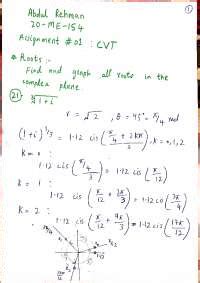 ①
Abdul Rehman
20-ME-154
Assignment # 01 : CVT
* Roots :-
Find and graph all roots in the
complex plane.
21. ∛1+i
r = √2 , θ = 45° = π/4 rad
(1+i)^1/3 = 1.12 cis (π/4 + 2kπ / 3) , k = 0,1,2
k = 0 :
1.12 cis (π/4 / 3) = 1.12 cis (π/12)
k = 1 :
1.12 cis (π/12 + 2π/3) = 1.12 cis (3π/4)
k = 2 :
1.12 cis (π/12 + 4π/3) = 1.12 cis (17π/12)